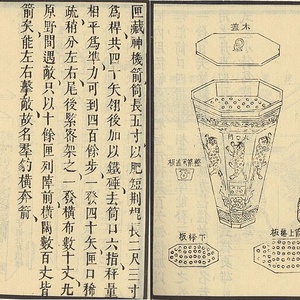 木蓋
下格板
匣藏神機箭筒長五寸以肥短荊長二尺三寸
爲桿共四十矢翎後加以鐵硾去筒口六指秤量
相平爲準力可到四百餘步一發四十矢匣口稀
疏稍分左右尾後緊密架之一發橫布數十丈凡
原野間遇敵只以十餘匣列陣前橫闊數百丈皆
箭矣能左右擊敵故名羣豹橫奔箭